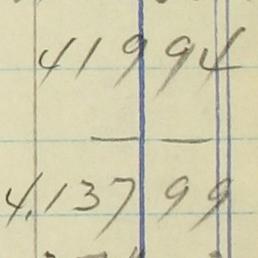 419 94
— —
4,137 99